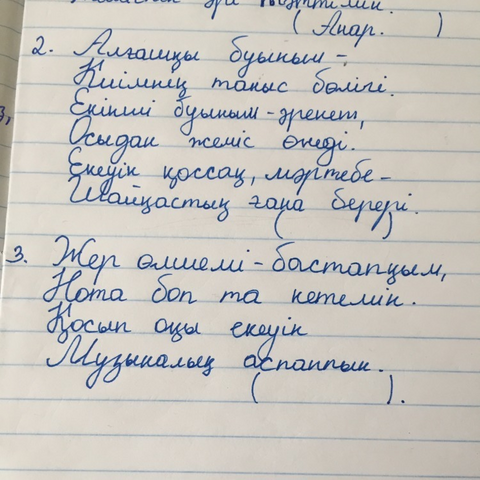 (Анар. )
2. Алғашқы буыным -
Киімнің таныс бөлігі.
Екінші буыным - әрекет,
Осыдан жеміс өнеді.
Екеуін қоссаң, мәртебе -
Шайқастың ғана берері.
( )
3. Жер өлшемі - бастапқым,
Нота боп та кетемін.
Қосып оқы екеуін
Музыкалық аспаппын.
( ).